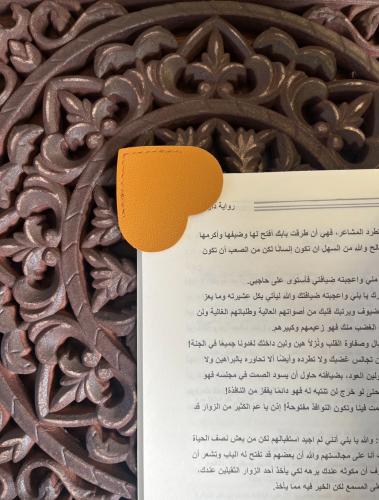 رواية
تطرد المشاعر، فهي أن طرقت بابك أفتح لها وضيفها وأكرمها
والله من السهل ان تكون إنسانًا لكن من الصعب أن تكون
واعجبته ضيافتي فأستوى على حاجبي.
يا بلي واعجبته ضيافتك والله ليأتي بكل عشيرته وما يعز
ضيوف ويرتبك قلبك من أصواتهم العالية وطلباتهم الغالية ولن
الغضب منك فهو زعيمهم وكبيرهم.
وصفاوة القلب ونُزلاً هين ولين داخلك لغدونا جميعًا في الجنة!
تجالس غضبك ولا تطرده وأيضًا ألا تحاوره بالبراهين ولا
ولين العود، بضيافته حاول أن يسود الصمت في مجلسه فهو
حتى لو خرج لن تنتبه له فهو دائمًا يقفز من النافذة!
فينا وتكون النوافذ مفتوحة؟ إذن يا عم الكثير من الزوار قد
والله يا بلي أنني لم اجيد استقبالهم لكن من بعض نصف الحياة
أنا على مجالستهم والله ان بعضهم قد تفتح له الباب وتشعر أن
أن مكوثه عندك برهه لكي يأخذ أحد الزوار الثقيلين عندك،
المسمع لكن الخير فيه مما يأخذ.